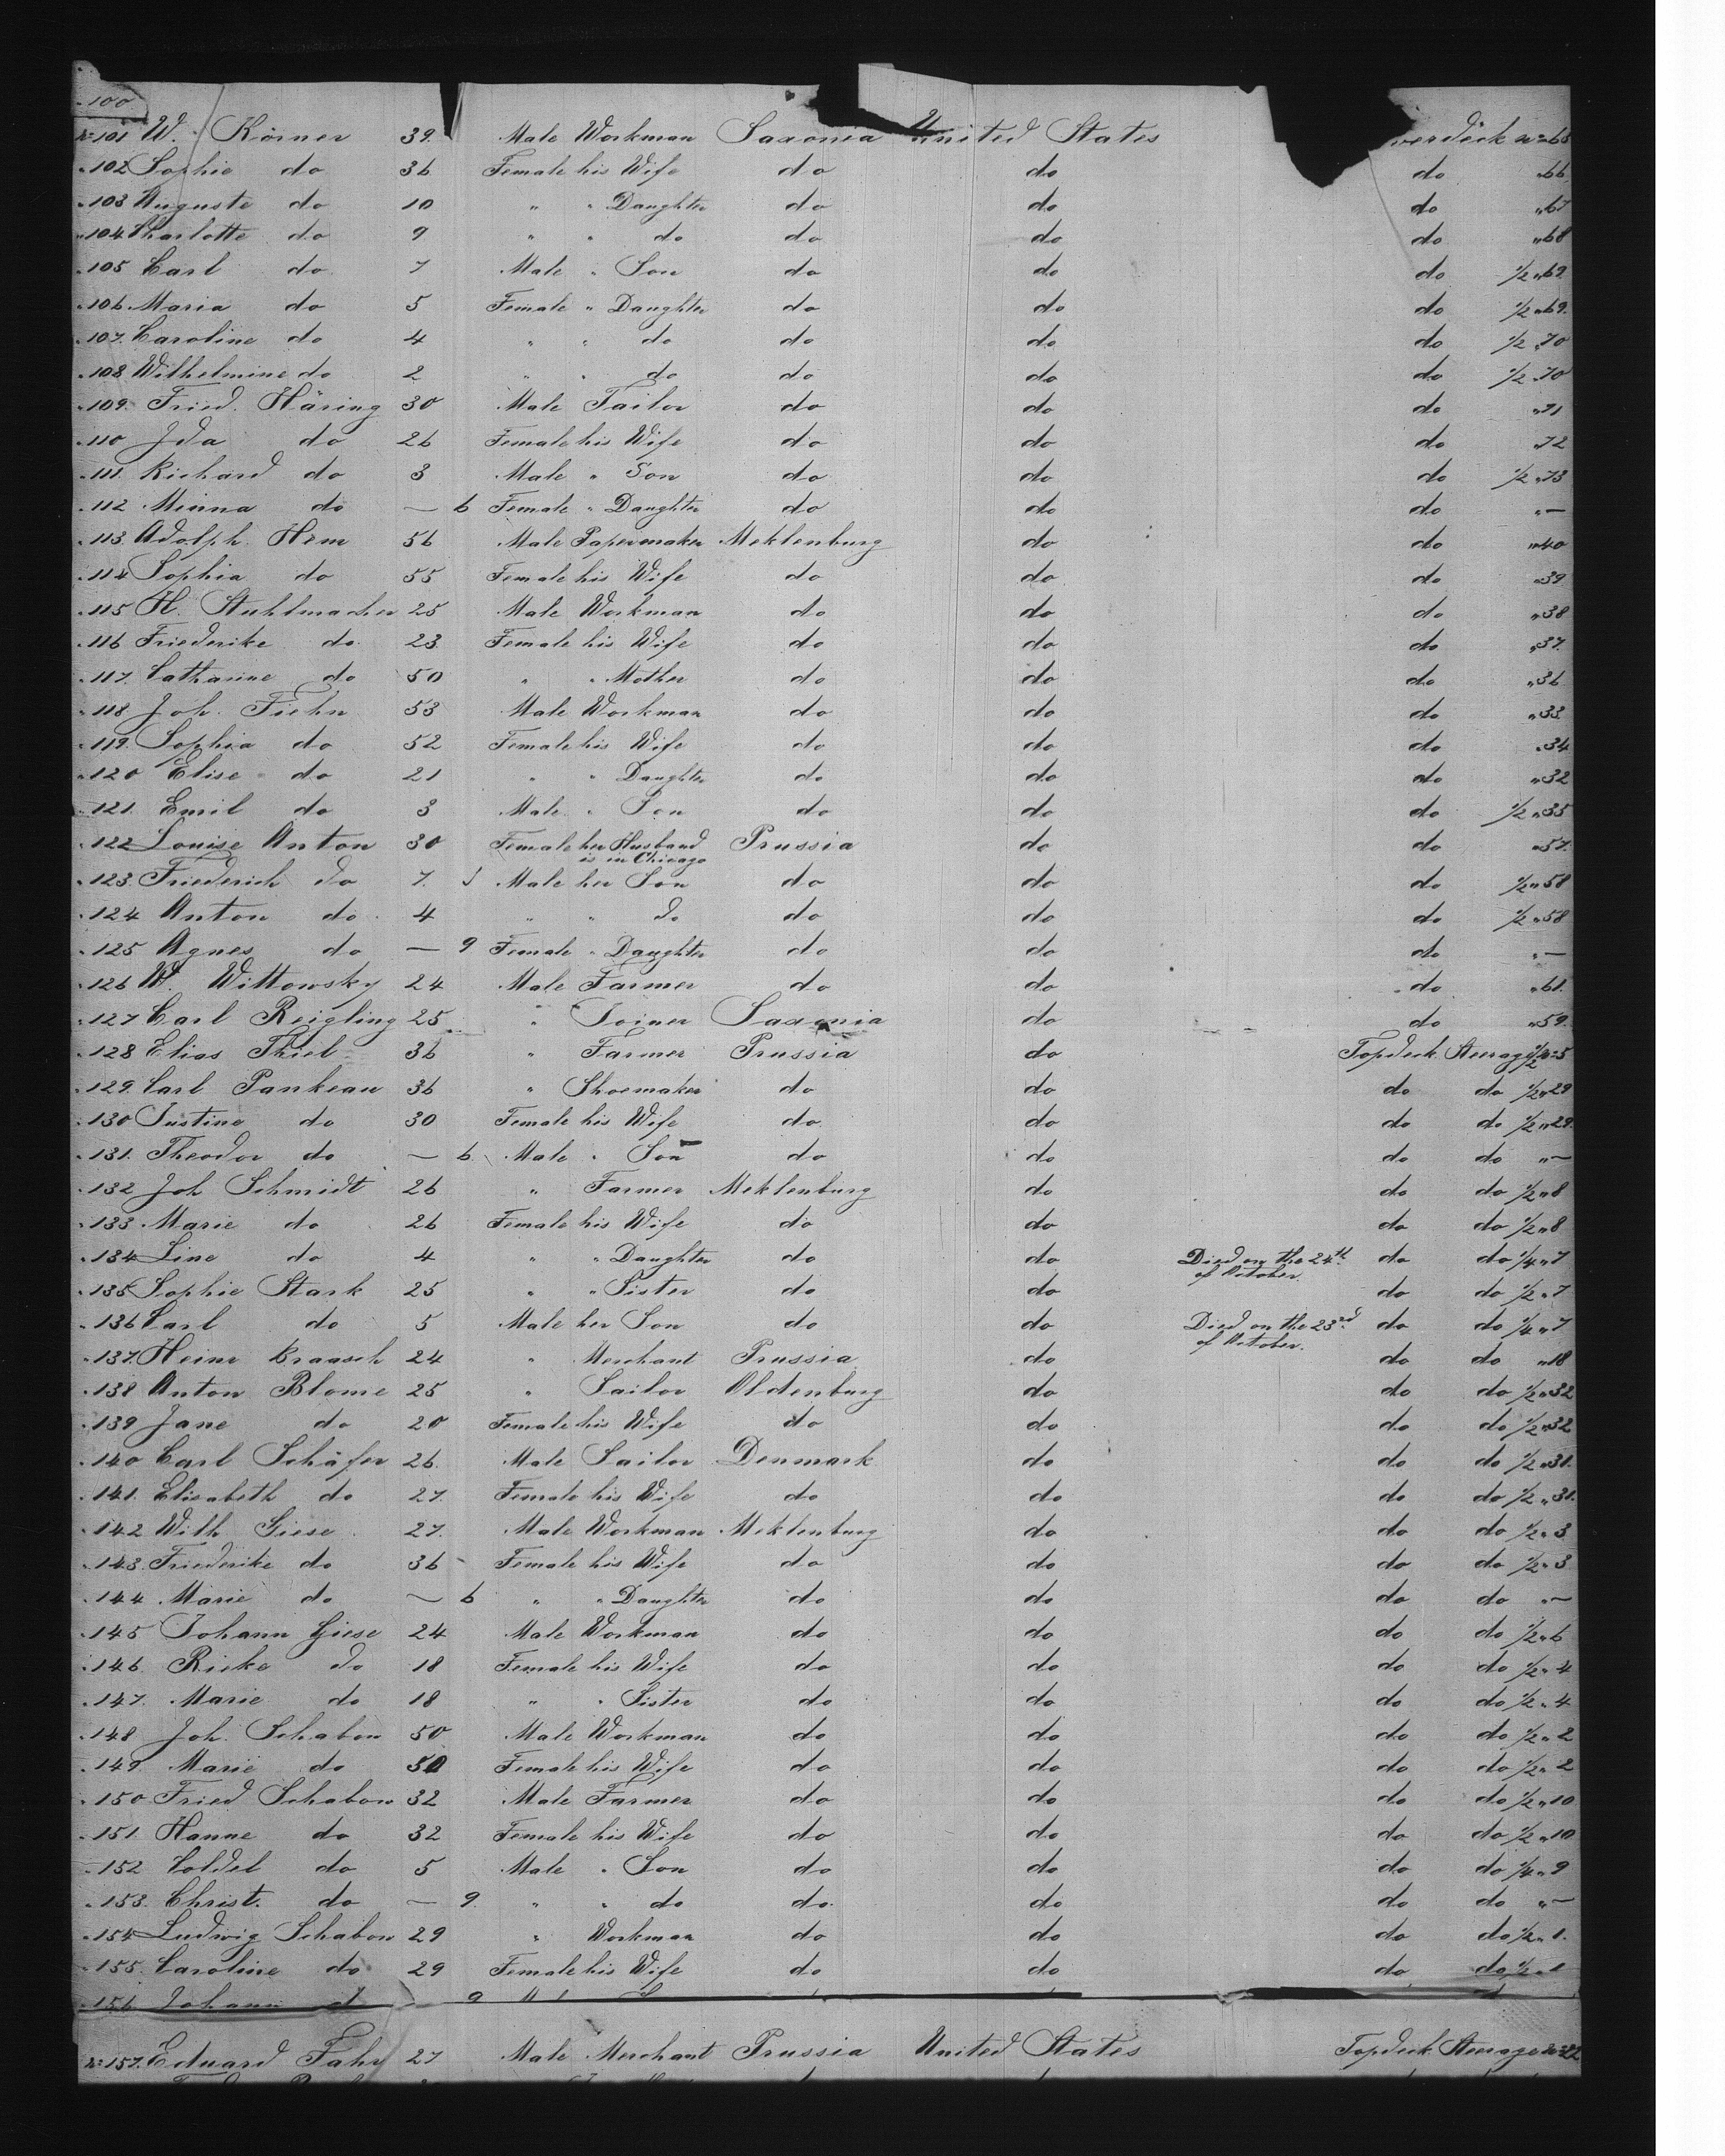 " 100
No 101 W. Körner 39. Male Workman Saxonia United States verdeck No 65
" 102 Sophie do 36 Female his Wife do do do " 66
" 103 Auguste do 10 " " Daughter do do do " 67
" 104 Charlotte do 9 " " do do do do " 68
" 105 Carl do 7 Male " Son do do do 1/2 " 69
" 106. Maria do 5 Female " Daughter do do do 1/2 " 69.
" 107. Caroline do 4 " " do do do do 1/2 " 70
" 108 Wilhelmine do 2 " " do do do do 1/2 " 70
" 109. Fried. Häring 30 Male Tailor do do do " 71
" 110 Ida do 26 Female his Wife do do do " 72
" 111. Richard do 3 Male " Son do do do 1/2 " 73
" 112 Minna do — 6 Female " Daughter do do do " —
" 113. Adolph Hem 56 Male Papermaker Meklenburg do do " 40
" 114 Sophia do 55 Female his Wife do do do " 39
" 115 H. Stuhlmacher 25 Male Workman do do do " 38
" 116 Friederike do 23 Female his Wife do do do " 37.
" 117. Catharine do 50 " " Mother do do do " 36
" 118. Joh. Fiehn 53 Male Workman do do do " 33
" 119. Sophia do 52 Female his Wife do do do " 34
" 120 Elise do 21 " " Daughter do do do " 32
" 121. Emil do 3 Male " Son do do do 1/2 " 35
" 122 Louise Anton 30 Female her Husband is in Chicago Prussia do do " 57.
" 123. Friederich do 7. Male her Son do do do 1/2 " 58
" 124 Anton do 4 " " do do do do 1/2 " 58
" 125 Agnes do — 9 Female " Daughter do do do " —
" 126 W. Wittowsky 24 Male Farmer do do do " 61.
" 127 Carl Reigling 25 " Joiner Saxonia do do " 59.
" 128 Elias Thiel 36 " Farmer Prussia do Topdeck Steerage 1/2 No 5
" 129. Carl Pankeau 36 " Shoemaker do do do do 1/2 " 29
" 130 Justine do 30 Female his Wife do do do do 1/2 " 29.
" 131. Theodor do — 6. Male " Son do do do do " —
" 132 Joh Schmidt 26 " Farmer Meklenburg do do do 1/2 " 8
" 133 Marie do 26 Female his Wife do do do do 1/2 " 8
" 134 Line do 4 " " Daughter do do Died on the 24th of October. do do 1/4 " 7
" 135 Sophie Stark 25 " " Sister do do do do 1/2 " 7
" 136 Carl do 5 Male her Son do do Died on the 23rd of October. do do 1/4 " 7
" 137. Heinr Braasch 24 " Merchant Prussia do do do " 18
" 138 Anton Blome 25 " Sailor Oldenburg do do do 1/2 " 32
" 139 Jane do 20 Female his Wife do do do do 1/2 " 32
" 140 Carl Schäfer 26. Male Sailor Denmark do do do 1/2 " 31.
" 141. Elisabeth do 27. Female his Wife do do do do 1/2 " 31.
" 142 Wilh Giese 27. Male Workman Meklenburg do do do 1/2 " 3
" 143. Friederike do 36 Female his Wife do do do do 1/2 " 3
" 144 Marie do — 6 " " Daughter do do do do " —
" 145 Johann Giese 24 Male Workman do do do do 1/2 " 6
" 146. Rieke do 18 Female his Wife do do do do 1/2 " 4
" 147. Marie do 18 " " Sister do do do do 1/2 " 4
" 148 Joh. Schabow 50 Male Workman do do do do 1/2 " 2
" 149 Marie do 50 Female his Wife do do do do 1/2 " 2
" 150 Fried Schabow 32 Male Farmer do do do do 1/2 " 10
" 151. Hanne do 32 Female his Wife do do do do 1/2 " 10
" 152 Coldel do 5 Male " Son do do do do 1/4 " 9
" 153. Christ. do — 9. " " do do. do do do " —
" 154 Ludwig Schabow 29 " Workman do do do do 1/2 " 1.
" 155. Caroline do 29 Female his Wife do do do do 1/2 " 1
" 156 Johann 9
No 157. Eduard Fahr 27 Male Merchant Prussia United States Topdeck Steerage No 22